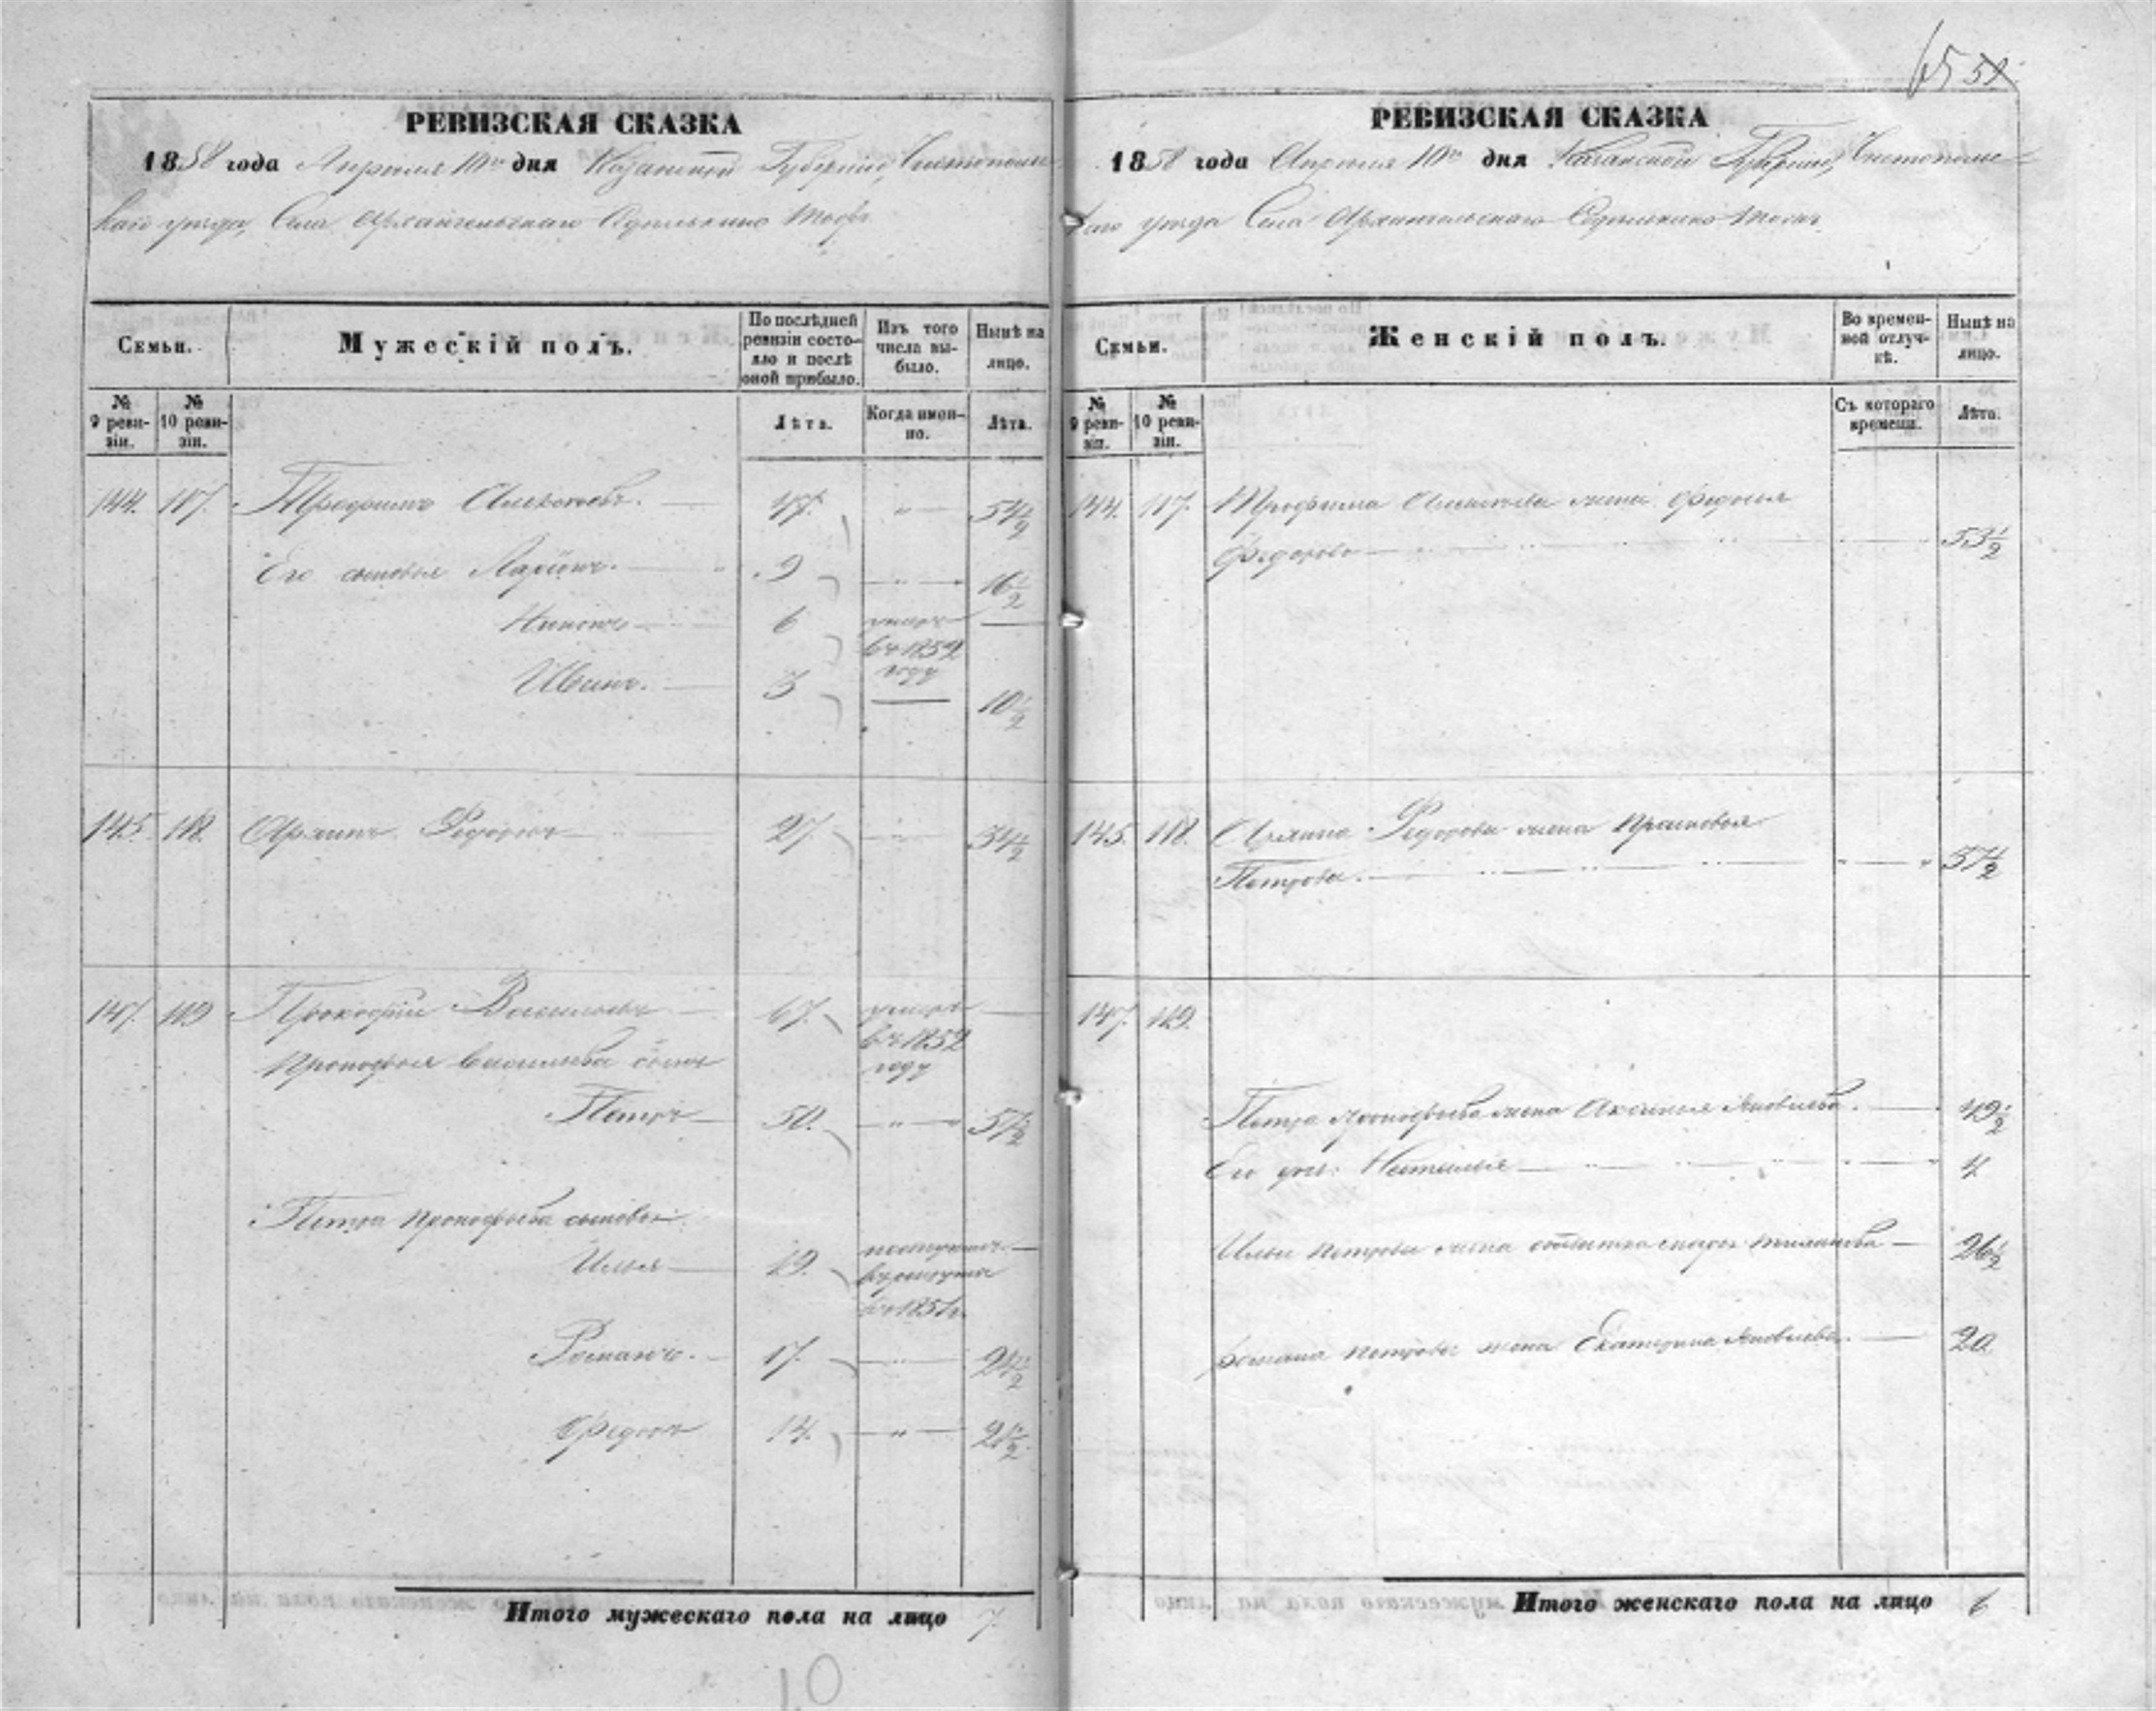 65 51
РЕВИЗСКАЯ СКАЗКА
1858 года Апреля 10го дня Казанской Губернии, Чистополь-
скаго уезда, Села Архангельскаго
Семьи.
Мужескій полъ.
По послѣдней ревизіи состо-
яло и послѣ оной прибыло.
Изъ того числа вы-
было.
Нынѣ на лицо.
№ 9 реви-
зіи.
№ 10 реви-
зіи.
Лѣта.
Когда имен-
но.
Лѣта.
144. 117. Трофимъ Алексѣевъ. 47. 54½
Его сыновья Ларіонъ. 9 16½
6 умеръ
въ 1852
году
Иванъ. 3 10½
145. 118. Федоровъ 27. 34½
147. 119 Прокофій Васильевъ 67. умеръ
въ 1852
году
Прокофья Васильева сынъ
Петръ 50. 57½
Петра Прокофьева сыновья
Илья 19. поступилъ
въ рекруты
въ 1854г.
Романъ. 17. 24½
Федотъ 14. 21½
Итого мужескаго пола на лицо 7.
10
РЕВИЗСКАЯ СКАЗКА
1858 года Апреля 10го дня Казанской Губерніи, Чистополь-
скаго уезда Села Архангельскаго
Семьи.
Женскій полъ.
Во времен-
ной отлуч-
кѣ.
Нынѣ на лицо.
№ 9 реви-
зіи.
№ 10 реви-
зіи.
Съ котораго времени.
Лѣта.
144. 117. Трофима Алексѣева жена Федосья
Федорова 53½
145. 118. Федорова жена Прасковья
Петрова. 37½
147. 119.
Петра Прокофьева жена Аксинья Яковлева. 49½
Его дочь Наталья 4
Ильи Петрова жена 26½
Романа Петрова жена Екатерина Яковлева. 20
Итого женскаго пола на лицо 6